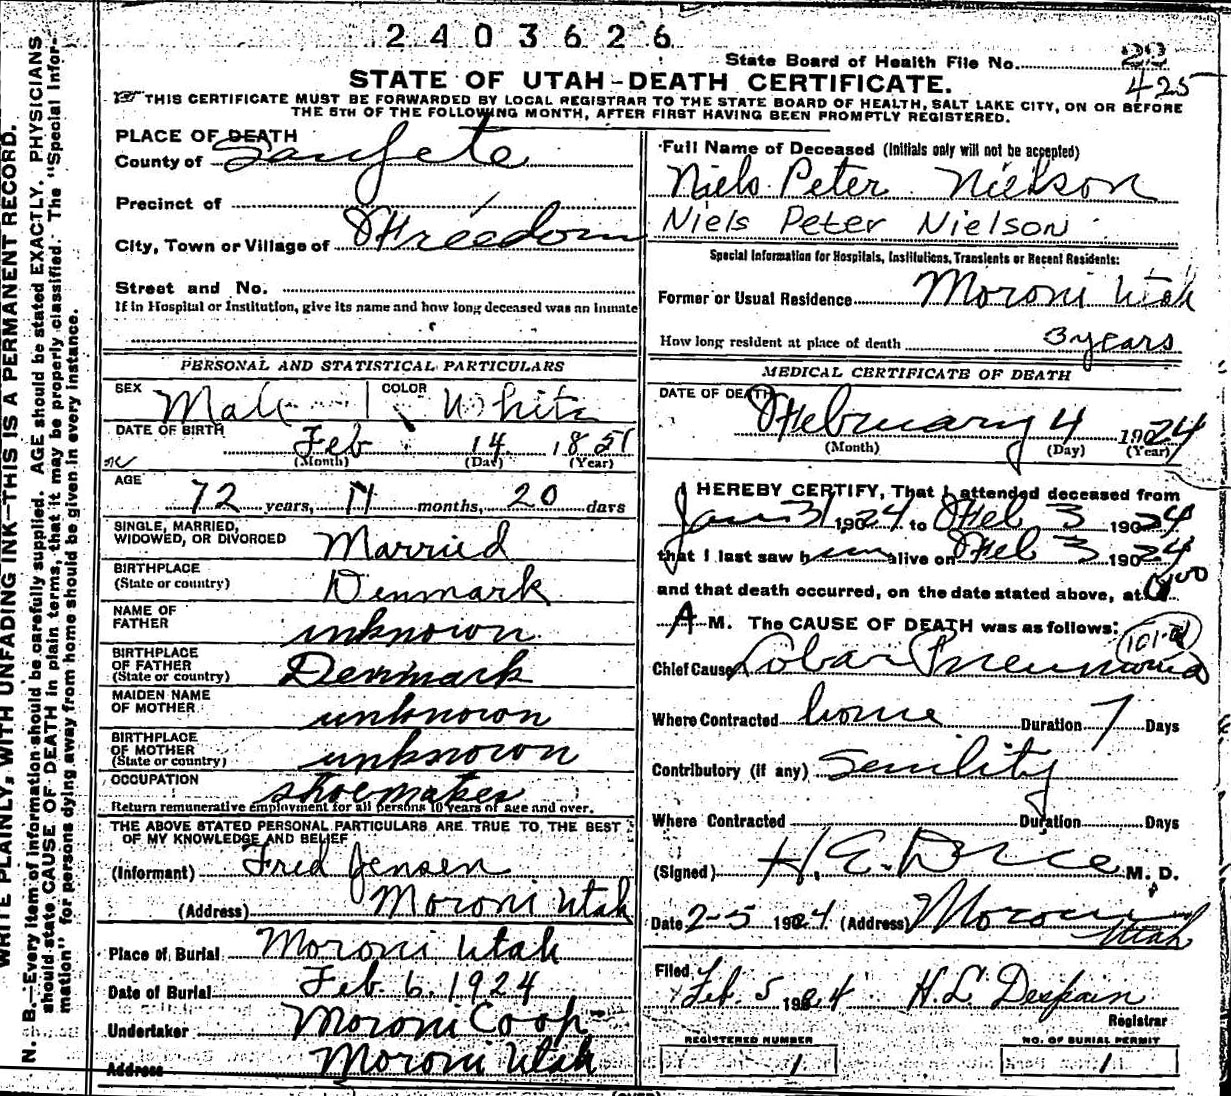 2403626
State Board of Health File No. 22
425
STATE OF UTAH-DEATH CERTIFICATE.
THIS CERTIFICATE MUST BE FORWARDED BY LOCAL REGISTRAR TO THE STATE BOARD OF HEALTH, SALT LAKE CITY, ON OR BEFORE
THE 5TH OF THE FOLLOWING MONTH, AFTER FIRST HAVING BEEN PROMPTLY REGISTERED.
WRITE PLAINLY, WITH UNFADING INK—THIS IS A PERMANENT RECORD.
N. B.—Every item of information should be carefully supplied. AGE should be stated EXACTLY. PHYSICIANS
should state CAUSE OF DEATH in plain terms, that it may be properly classified. The "Special Infor-
mation" for persons dying away from home should be given in every instance.
PLACE OF DEATH
County of Sanpete
Precinct of
City, Town or Village of Freedom
Street and No.
If in Hospital or Institution, give its name and how long deceased was an inmate
PERSONAL AND STATISTICAL PARTICULARS
SEX Male COLOR White
DATE OF BIRTH Feb 14 1851
(Month) (Day) (Year)
AGE
72 years, 11 months, 20 days
SINGLE, MARRIED,
WIDOWED, OR DIVORCED Married
BIRTHPLACE
(State or country) Denmark
NAME OF
FATHER unknown
BIRTHPLACE
OF FATHER
(State or country) Denmark
MAIDEN NAME
OF MOTHER unknown
BIRTHPLACE
OF MOTHER
(State or country) unknown
OCCUPATION shoemaker
Return remunerative employment for all persons 10 years of age and over.
THE ABOVE STATED PERSONAL PARTICULARS ARE TRUE TO THE BEST
OF MY KNOWLEDGE AND BELIEF
(Informant) Fred Jensen
(Address) Moroni Utah
Place of Burial Moroni Utah
Date of Burial Feb. 6. 1924
Undertaker Moroni Coop
Address Moroni Utah
Full Name of Deceased (Initials only will not be accepted)
Niels Peter Nielson
Niels Peter Nielson
Special Information for Hospitals, Institutions, Transients or Recent Residents:
Former or Usual Residence Moroni Utah
How long resident at place of death 3 years
MEDICAL CERTIFICATE OF DEATH
DATE OF DEATH
February 4 1924
(Month) (Day) (Year)
I HEREBY CERTIFY, That I attended deceased from
Jan 31 1924 to Feb 3 1924
that I last saw him alive on Feb 3 1924
and that death occurred, on the date stated above, at
A M. The CAUSE OF DEATH was as follows:
Chief Cause Lobar Pneumonia
Where Contracted home Duration 7 Days
Contributory (if any) Senility
Where Contracted Duration Days
(Signed) M. D.
Date 2-5 1924 (Address) Moroni
Utah
Filed
Feb. 5 1924 H. L. Despain
Registrar
REGISTERED NUMBER NO. OF BURIAL PERMIT
1 1
(OVER)